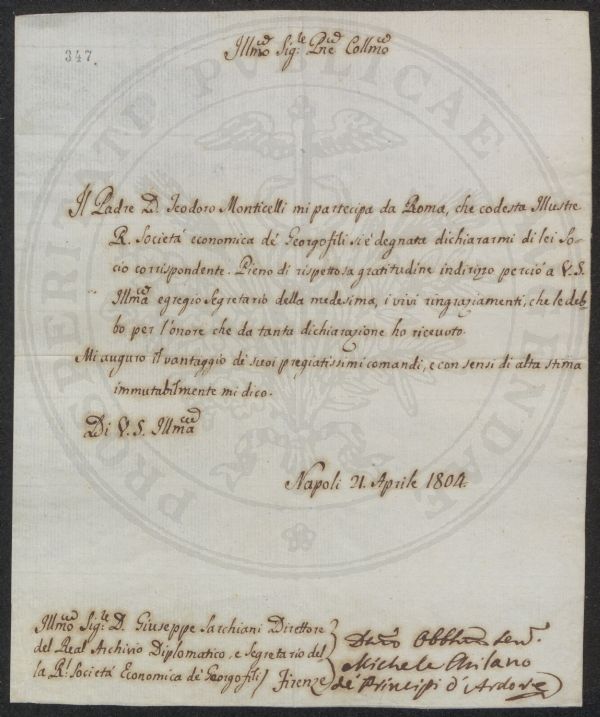 347.
Illmo Sigre Pne Collmo
Il Padre D. Teodoro Monticelli mi partecipa da Roma, che codesta Illustre
R. Società economica de' Georgofili si è degnata dichiararmi di lei So-
cio corrispondente. Pieno di rispettosa gratitudine indirizzo perciò a V.S.
Illma egregio Segretario della medesima, i vivi ringraziamenti, che le deb-
bo per l'onore che da tanta dichiarazione ho ricevuto.
Mi auguro il vantaggio di suoi pregiatissimi comandi, e con sensi di alta stima
immutabilmente mi dico.
Di V.S. Illma
Napoli 21. Aprile 1804.
Illmo Sigre D. Giuseppe Sarchiani Direttore
del Real Archivio Diplomatico, e Segretario del
la Rl Società Economica de' Georgofili / Firenze
Obblmo
Michele Milano
de' Principi d'Ardore
PROSPERITATI PUBLICAE AUGENDAE